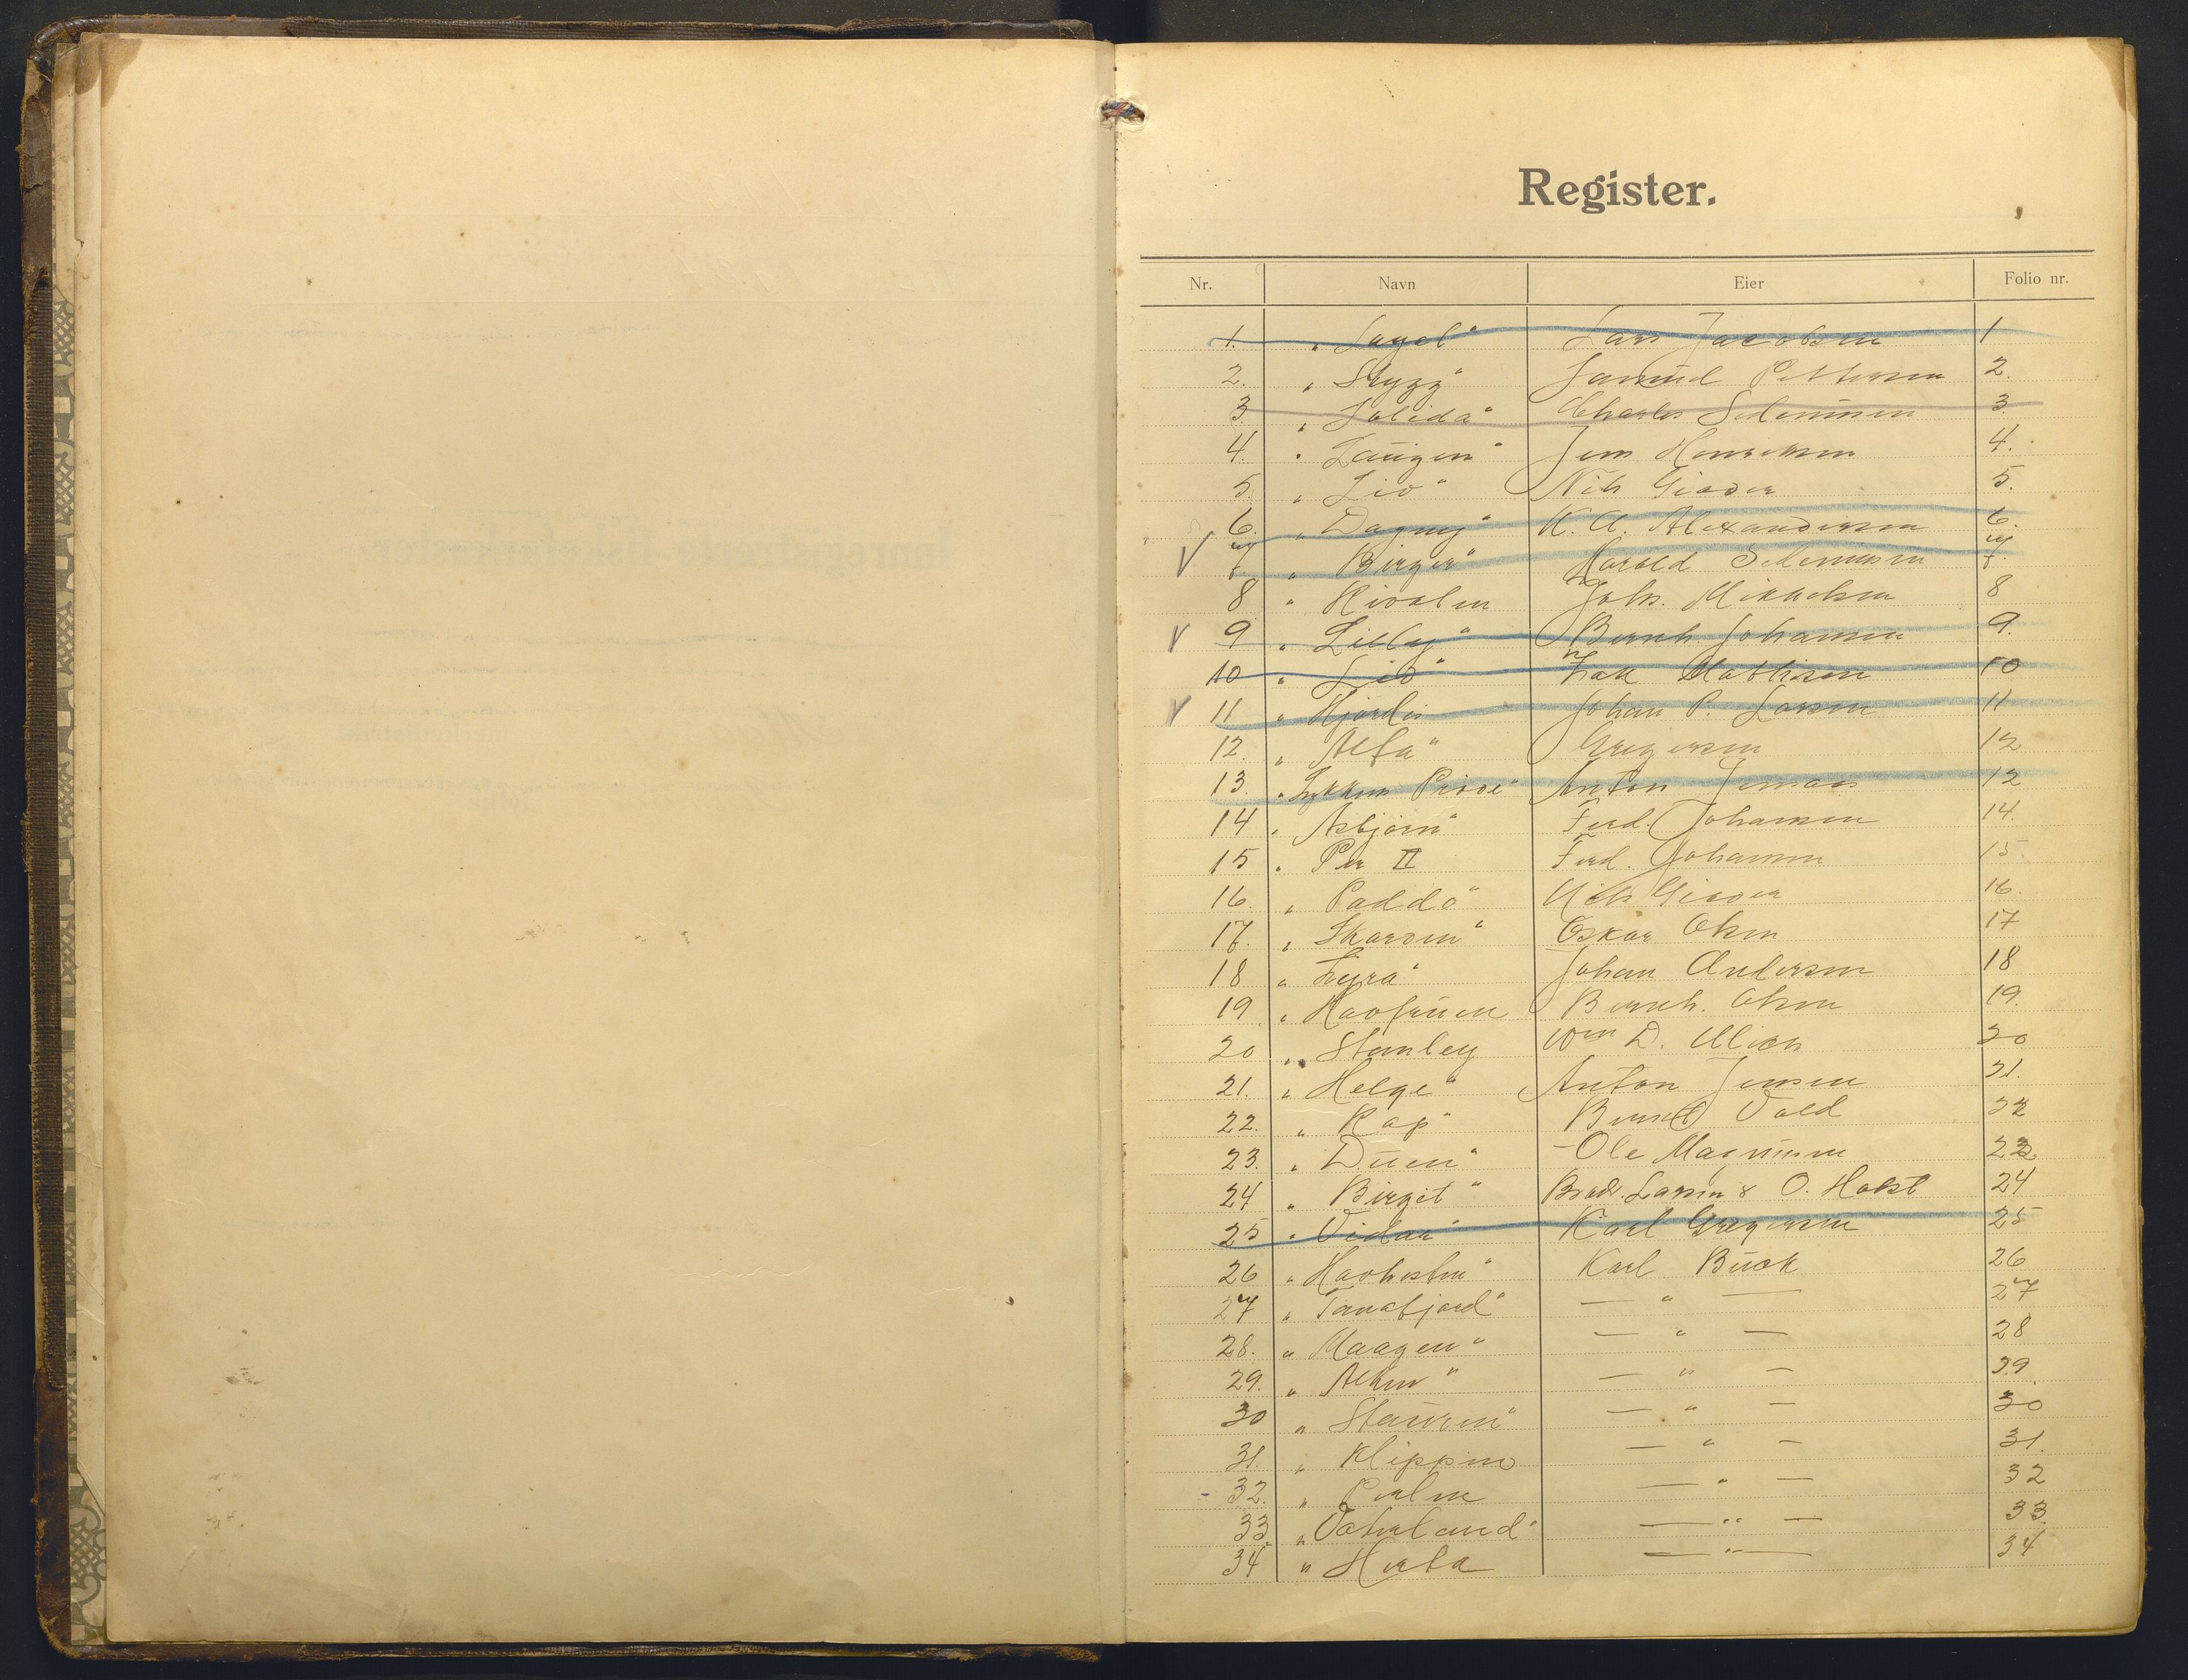 Register.
Nr. Navn Eier Folio nr.
1. „Sagol“ Lars Jacobsen 1
2. „Stygg“ Samuel Pettersen 2.
3. „Solida“ Charles Sedeniusen 3
4. „Laugen“ Jens Henriksen 4.
5. „Liv“ Nils Giæver 5.
6. „Dagny“ K. A. Alexandersen 6.
7. „Birger“ Harald Sedeniusen 7.
8 „Hvalen Johs. Mikkelsen 8
9 „Lilly“ Bernh. Johansen 9.
10 „Liv“ Isak Mathisen 10
11 „Hjørdis Johan P. Larsen 11
12. „Alfa“ Gregersen 12
13. „Lykkens Prøve“ Anton Jensen 12
14 „Asbjørn“ Ferd. Johansen 14.
15 „Per II Ferd. Johansen 15.
16. „Paddo“ Nils Giæver 16.
17. „Skarven“ Oskar Olsen 17
18 „Lyra“ Johan Andersen 18
19 „Havfruen Bernh. Olsen 19.
20 „Stanley Wm D. 20
21. „Helge“ Anton Jensen 21.
22. „Rap“ Bernt Vold 22
23. „Duen“ Ole Magnusen 23
24 „Birgit“ Brødr. Larsen & O. Holst 24
25 „Vidar“ Karl Gregersen 25
26 „Havhesten“ Karl Buck 26
27 „Tanafjord“ — „ — 27
28. „Maagen“ — „ — 28
29. „Alken“ — „ — 29
30 „Stauren“ — „ — 30
31. „Klippen — „ — 31.
32. „Perlen — „ — 32
33. „Vaterland“ — „ — 33.
34 „Herta — „ — 34